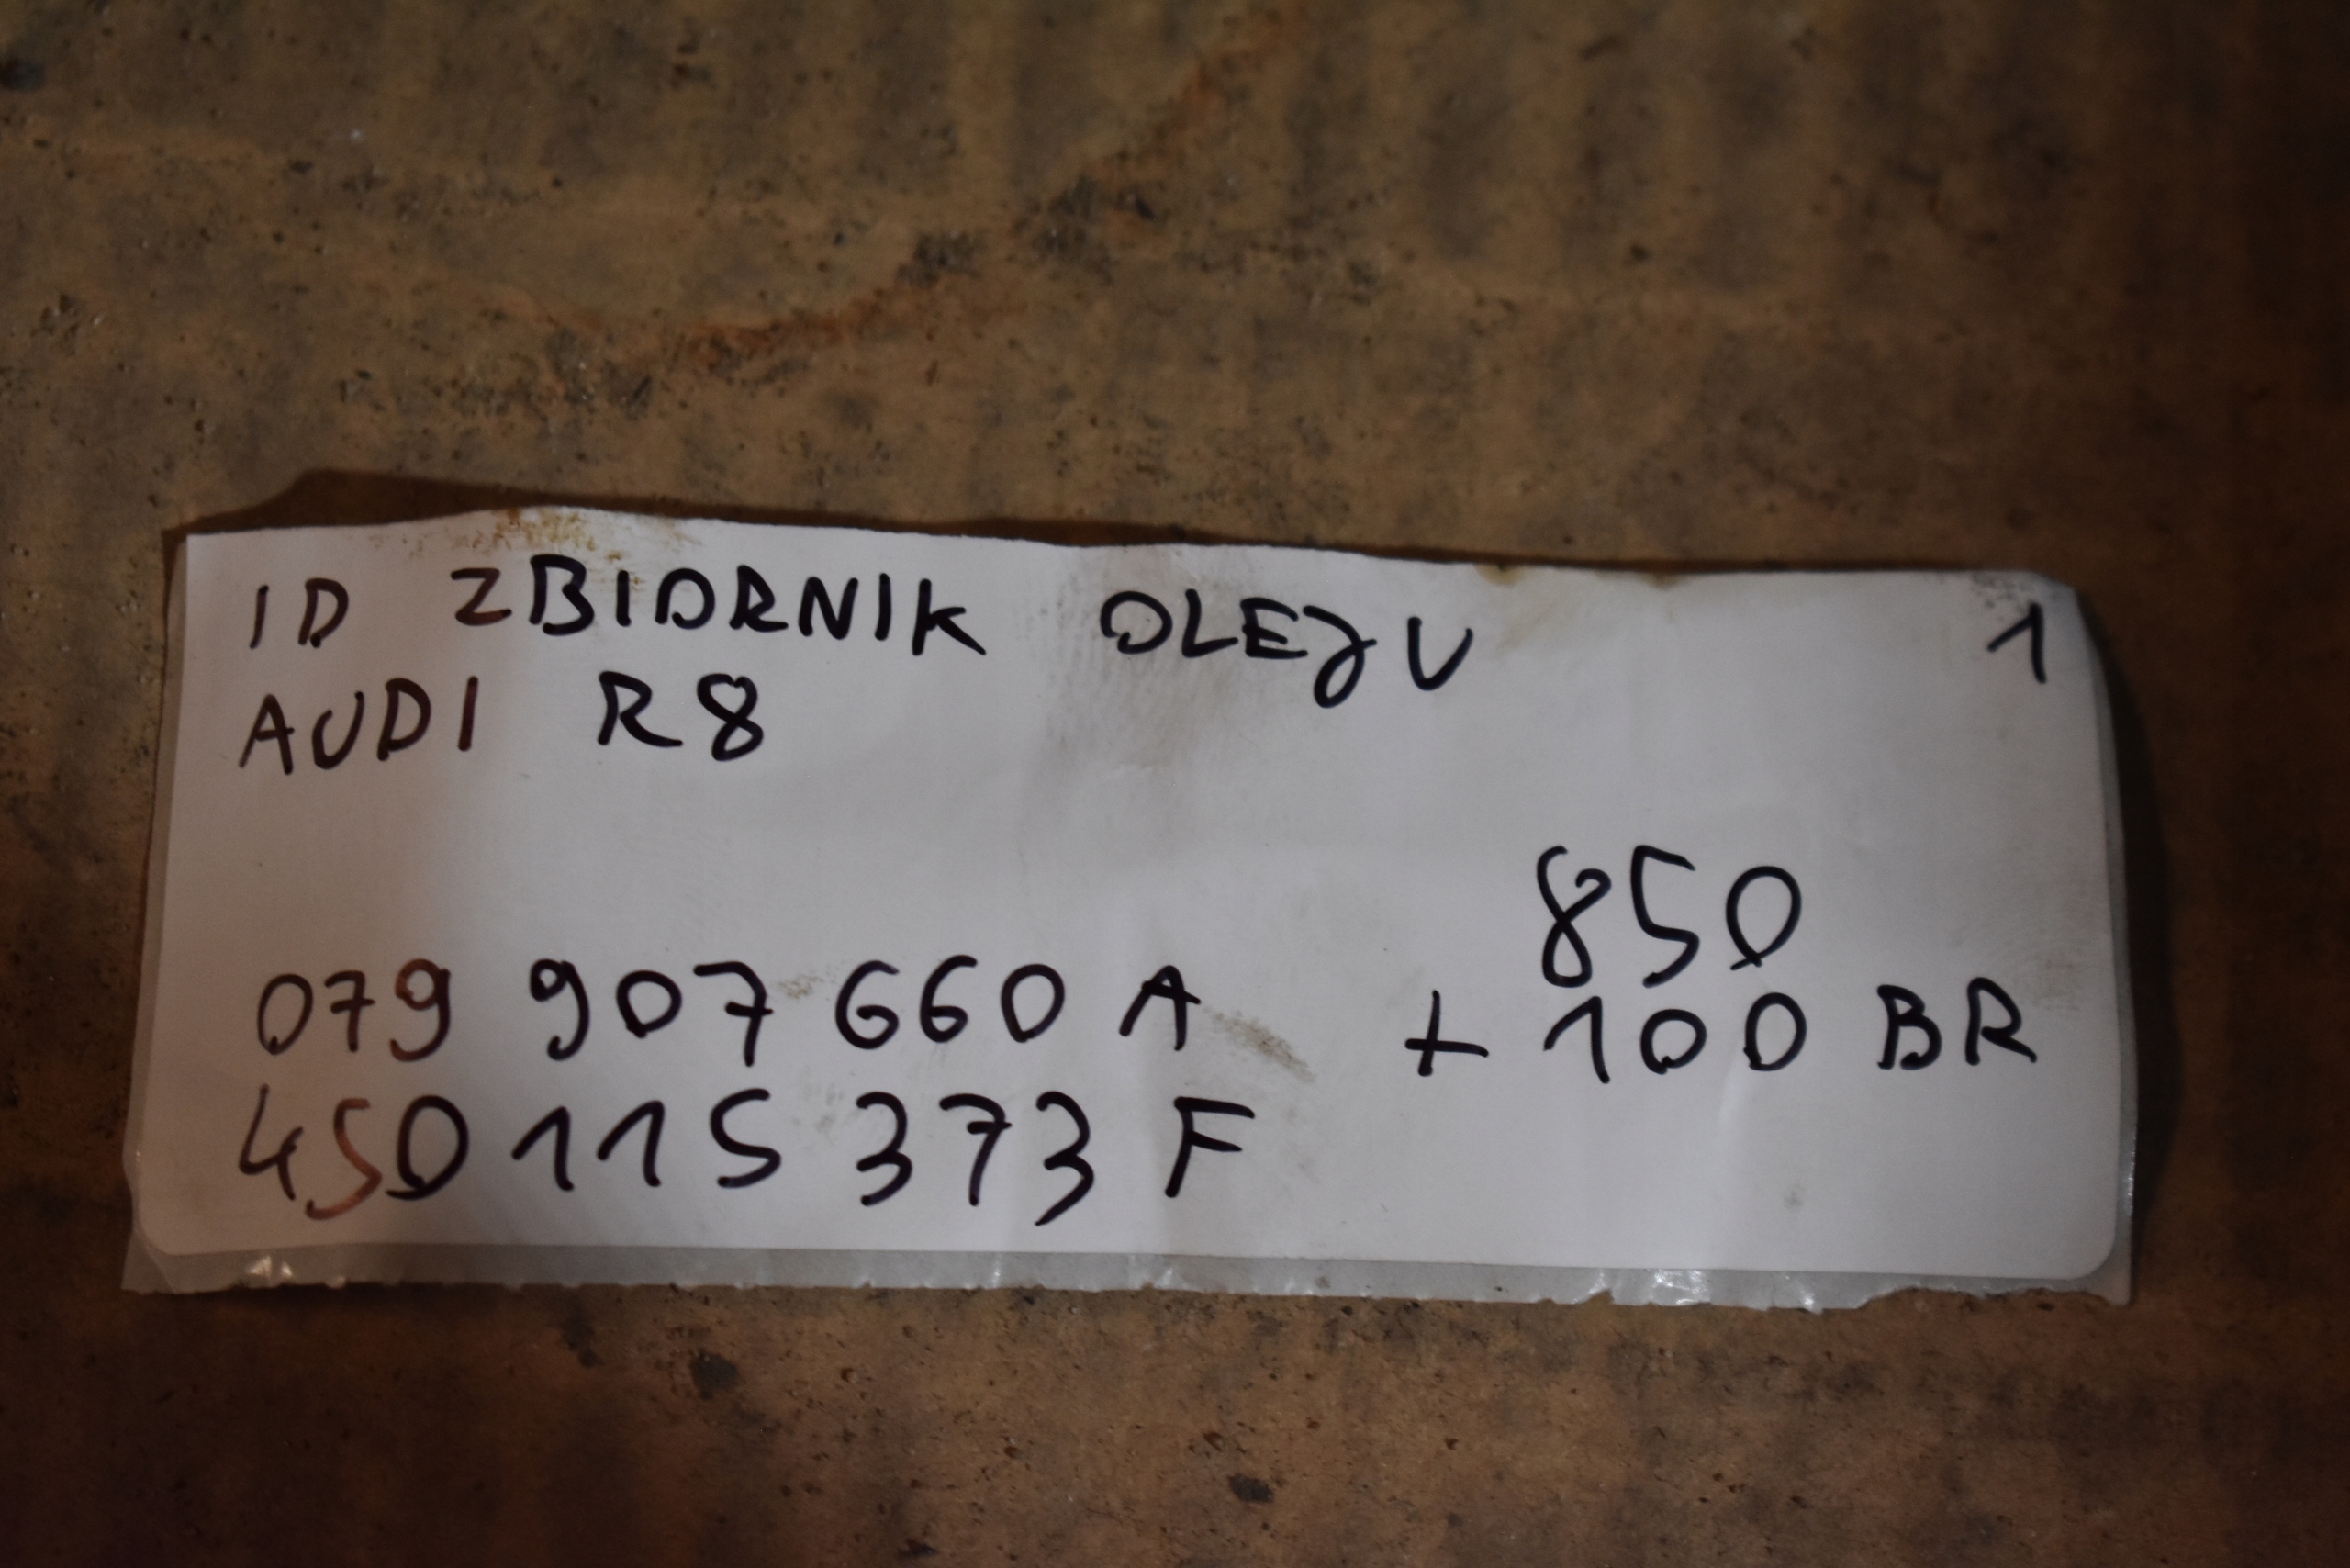 ID ZBIORNIK OLEJU 1
AUDI R8
850
079 907 660 A + 100 BR
450 115 373 F